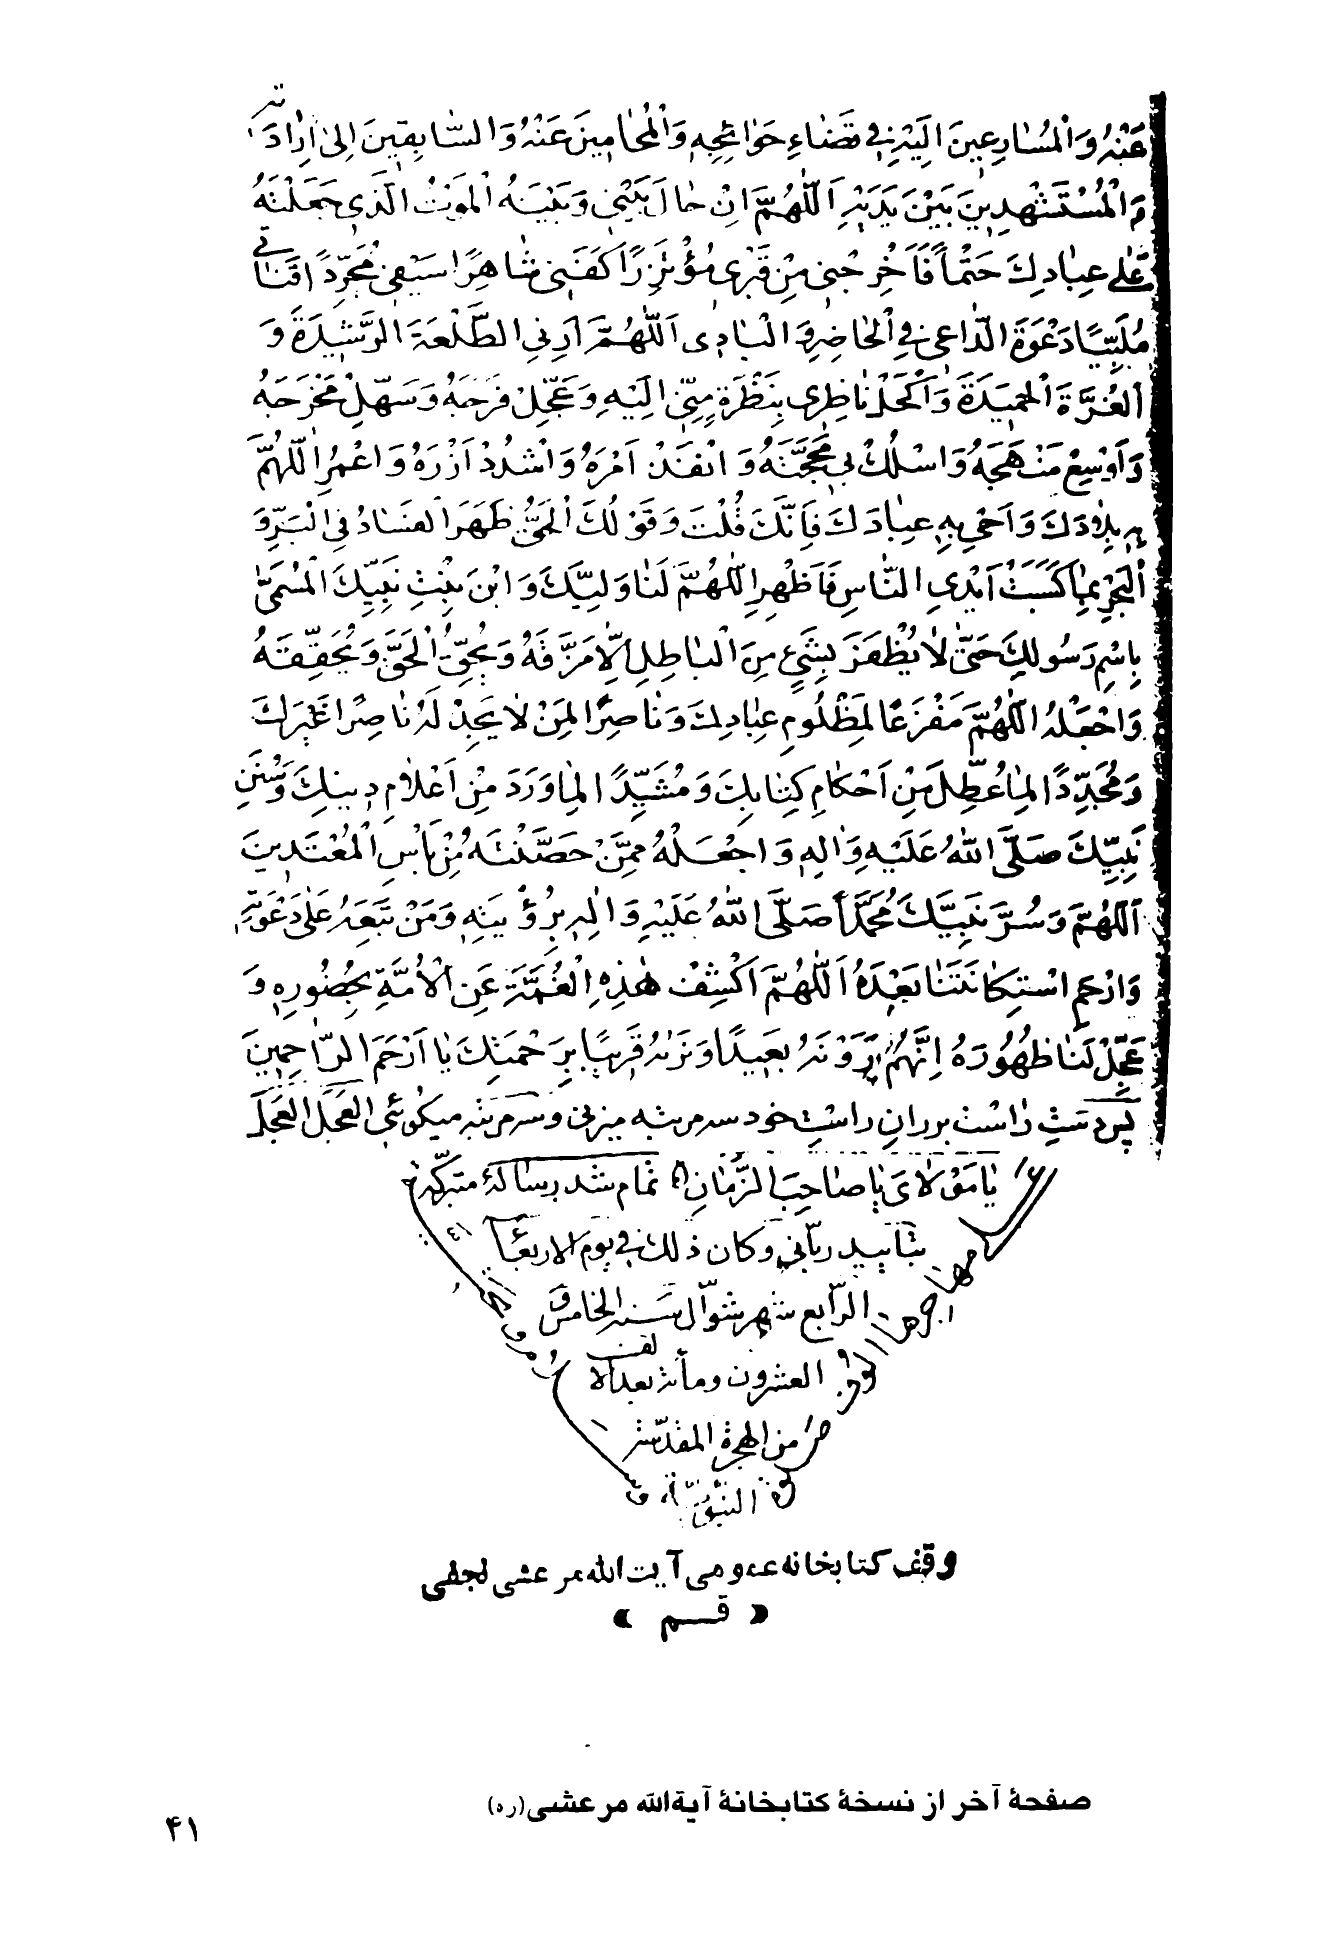 عَنْهُ وَالْمُسٰارِعِينَ اِلَيْهِ فِي قَضٰاءِ حَوٰائِجِهِ وَالْمُحٰامِينَ عَنْهُ وَالسّٰابِقِينَ اِلىٰ اِرٰادَتِهِ
وَالْمُسْتَشْهَدِينَ بَيْنَ يَدَيْهِ اَللّٰهُمَّ اِنْ حٰالَ بَيْنِي وَبَيْنَهُ الْمَوْتُ الَّذِي جَعَلْتَهُ
عَلىٰ عِبٰادِكَ حَتْماً فَاَخْرِجْنِي مِنْ قَبْرِي مُؤْتَزِرًا كَفَنِي شٰاهِرًا سَيْفِي مُجَرِّدًا قَنٰاتِي
مُلَبِّيًا دَعْوَةَ الدّٰاعِي فِي الْحٰاضِرِ وَالْبٰادِي اَللّٰهُمَّ اَرِنِي الطَّلْعَةَ الرَّشِيدَةَ وَ
الْغُرَّةَ الْحَمِيدَةَ وَاَكْحُلْ نٰاظِرِي بِنَظْرَةٍ مِنِّي اِلَيْهِ وَعَجِّلْ فَرَجَهُ وَسَهِّلْ مَخْرَجَهُ
وَاَوْسِعْ مَنْهَجَهُ وَاسْلُكْ بِي مَحَجَّتَهُ وَ انْفُذْ اَمْرَهُ وَاشْدُدْ اَزْرَهُ وَاعْمُرِ اللّٰهُمَّ
بِهِ بِلاٰدَكَ وَاَحْيِ بِهِ عِبٰادَكَ فَاِنَّكَ قُلْتَ وَقَوْلُكَ الْحَقُّ ظَهَرَ الْفَسٰادُ فِي الْبَرِّ وَ
الْبَحْرِ بِمٰا كَسَبَتْ اَيْدِي النّٰاسِ فَاَظْهِرِ اللّٰهُمَّ لَنٰا وَلِيَّكَ وَابْنَ بِنْتِ نَبِيِّكَ الْمُسَمّىٰ
بِاسْمِ رَسُولِكَ حَتّىٰ لاٰ يَظْفَرَ بِشَيْءٍ مِنَ الْبٰاطِلِ اِلاّٰ مَزَّقَهُ وَيُحِقَّ الْحَقَّ وَيُحَقِّقَهُ
وَاجْعَلْهُ اللّٰهُمَّ مَفْزَعًا لِمَظْلُومِ عِبٰادِكَ وَنٰاصِرًا لِمَنْ لاٰ يَجِدُ لَهُ نٰاصِرًا غَيْرَكَ
وَمُجَدِّدًا لِمٰا عُطِّلَ مِنْ اَحْكٰامِ كِتٰابِكَ وَمُشَيِّدًا لِمٰا وَرَدَ مِنْ اَعْلاٰمِ دِينِكَ وَسُنَنِ
نَبِيِّكَ صَلَّى اللّٰهُ عَلَيْهِ وَاٰلِهِ وَاجْعَلْهُ مِمَّنْ حَصَّنْتَهُ مِنْ بَأْسِ الْمُعْتَدِينَ
اَللّٰهُمَّ وَسُرَّ نَبِيَّكَ مُحَمَّدًا صَلَّى اللّٰهُ عَلَيْهِ وَاٰلِهِ بِرُؤْيَتِهِ وَمَنْ تَبِعَهُ عَلىٰ دَعْوَتِهِ
وَارْحَمِ اسْتِكٰانَتَنٰا بَعْدَهُ اَللّٰهُمَّ اكْشِفْ هٰذِهِ الْغُمَّةَ عَنِ الْاُمَّةِ بِحُضُورِهِ وَ
عَجِّلْ لَنٰا ظُهُورَهُ اِنَّهُمْ يَرَوْنَهُ بَعِيدًا وَنَرٰاهُ قَرِيبًا بِرَحْمَتِكَ يٰا اَرْحَمَ الرّٰاحِمِينَ
پس دستِ رٰاست بر رانِ راستِ خود سه مرتبه میزنی و سه مرتبه میگوئی العَجَل العَجَل
يٰا مَوْلاٰيَ يٰا صٰاحِبَ الزَّمٰانِ تمام شد رسالهٔ متبرکه
بتأیید ربّانی وکان ذلك فی یوم الاربعاء
الرّابع شهر شوّال سنه الخامس و
العشرون ومأته بعد الالف
من الهجرة المقدّسة
النبویّة
وقف کتابخانه عمومی آیت الله مرعشی نجفی
« قـــم »
صفحهٔ آخر از نسخهٔ کتابخانهٔ آیةالله مرعشی(ره)
۴۱